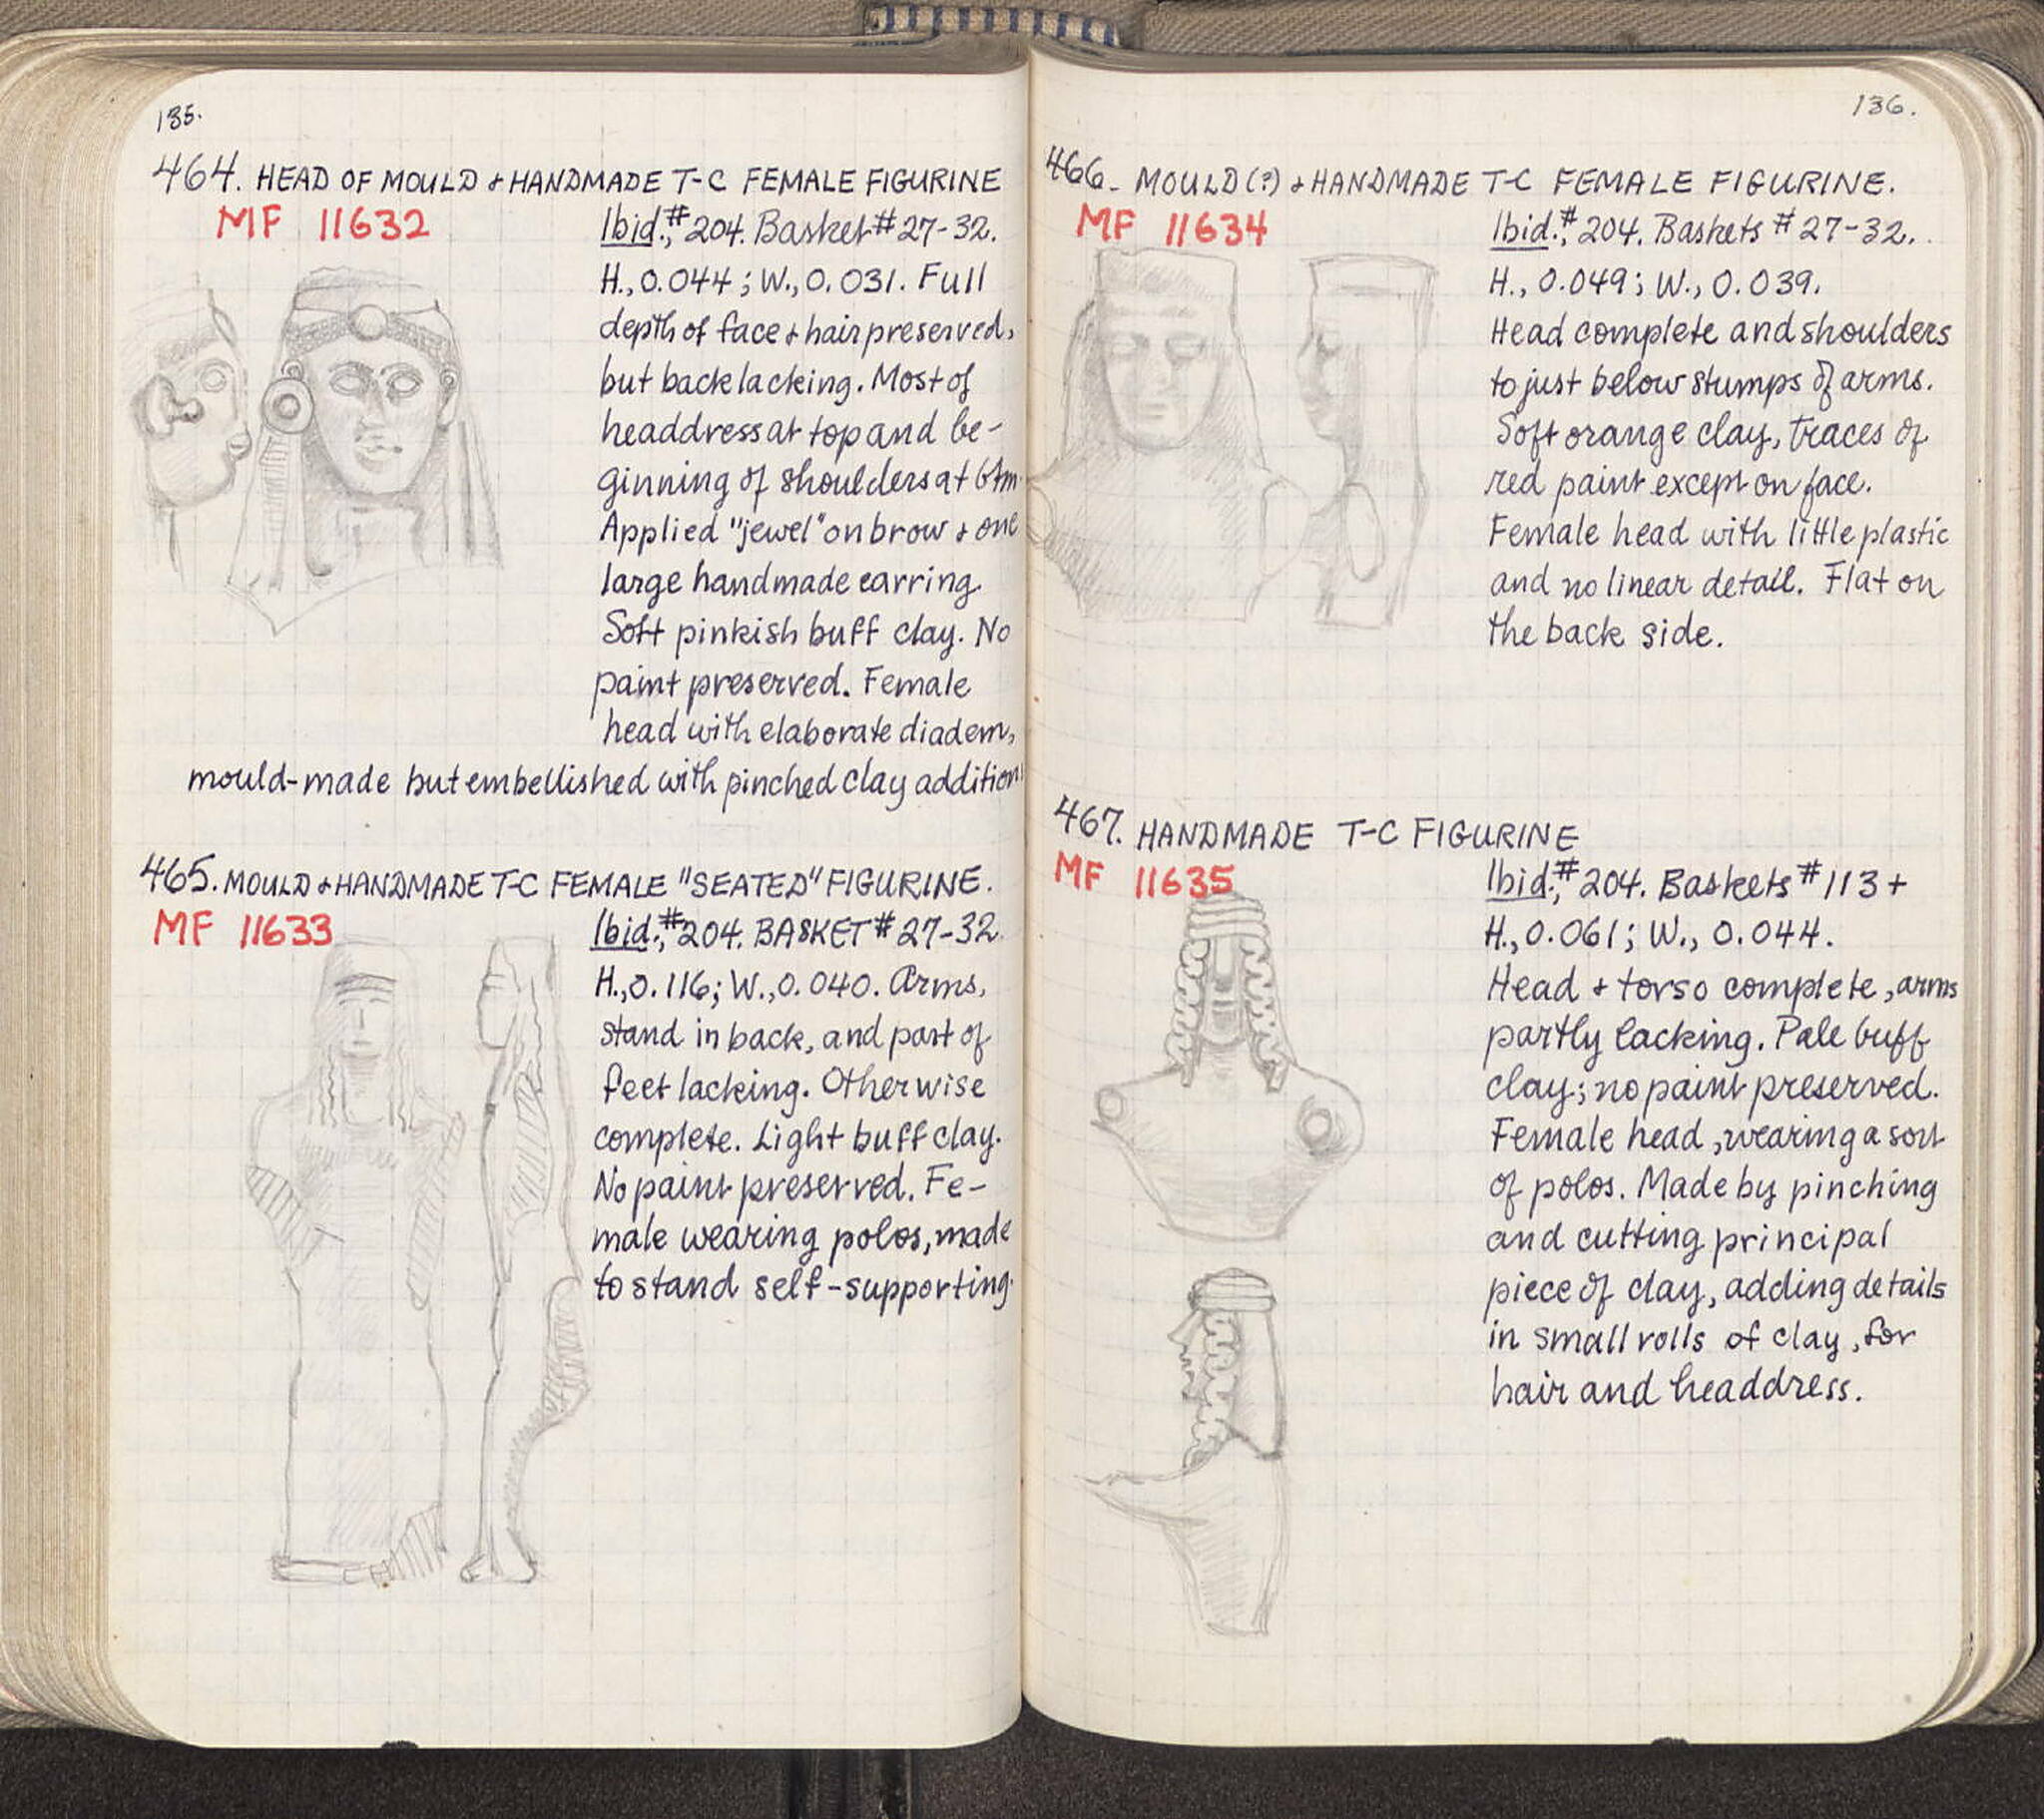 135.
464. HEAD OF MOULD & HANDMADE T-C FEMALE FIGURINE
MF 11632
Ibid., #204. Basket # 27-32.
H., 0.044; W., 0.031. Full
depth of face & hair preserved,
but back lacking. Most of
headdress at top and be-
ginning of shoulders at btm.
Applied "jewel" on brow & one
large handmade earring.
Soft pinkish buff clay. No
paint preserved. Female
head with elaborate diadem,
mould-made but embellished with pinched clay addition
465. MOULD & HANDMADE T-C FEMALE "SEATED" FIGURINE.
MF 11633
Ibid., #204. BASKET # 27-32.
H., 0.116; W., 0.040. Arms,
stand in back, and part of
feet lacking. Otherwise
complete. Light buff clay.
No paint preserved. Fe-
male wearing polos, made
to stand self-supporting.
136.
466. MOULD (?) & HANDMADE T-C FEMALE FIGURINE.
MF 11634
Ibid., #204. Baskets # 27-32.
H., 0.049; W., 0.039.
Head complete and shoulders
to just below stumps of arms.
Soft orange clay, traces of
red paint except on face.
Female head with little plastic
and no linear detail. Flat on
the back side.
467. HANDMADE T-C FIGURINE
MF 11635
Ibid., #204. Baskets #113+
H., 0.061; W., 0.044.
Head & torso complete, arms
partly lacking. Pale buff
clay; no paint preserved.
Female head, wearing a sort
of polos. Made by pinching
and cutting principal
piece of clay, adding details
in small rolls of clay, for
hair and headdress.